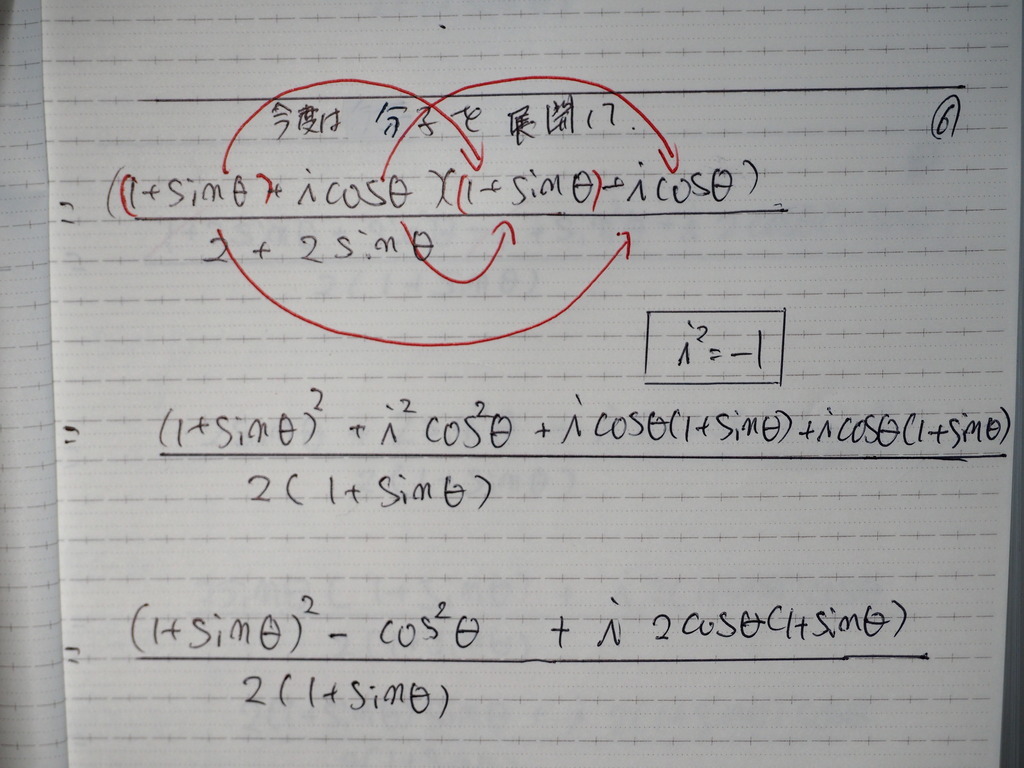 今度は 分子を 展開して.
⑥
= ((1+sinθ)+icosθ)((1+sinθ)+icosθ) / 2+2sinθ
i²=-1
= (1+sinθ)²+i²cos²θ+icosθ(1+sinθ)+icosθ(1+sinθ) / 2(1+sinθ)
= (1+sinθ)²-cos²θ + i 2cosθ(1+sinθ) / 2(1+sinθ)